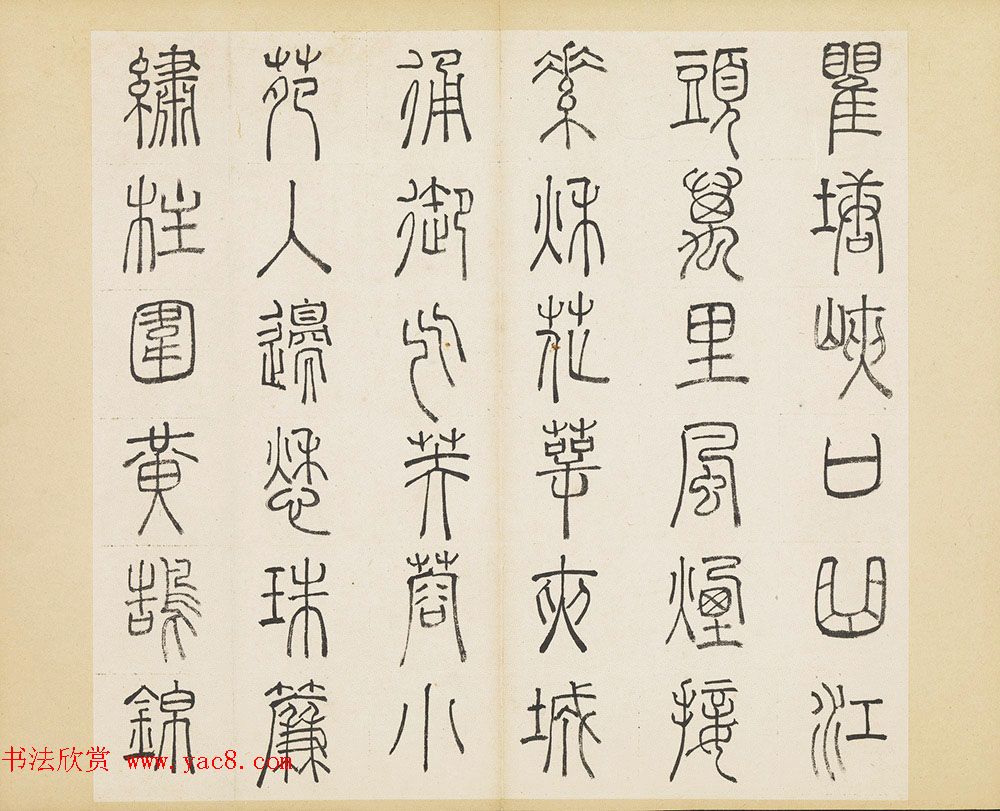 瞿塘峽口曲江
頭萬里風煙接
素秋花萼夾城
通御气芙蓉小
苑入邊愁珠簾
繡柱圍黃鵠錦
书法欣赏 www.yac8.com